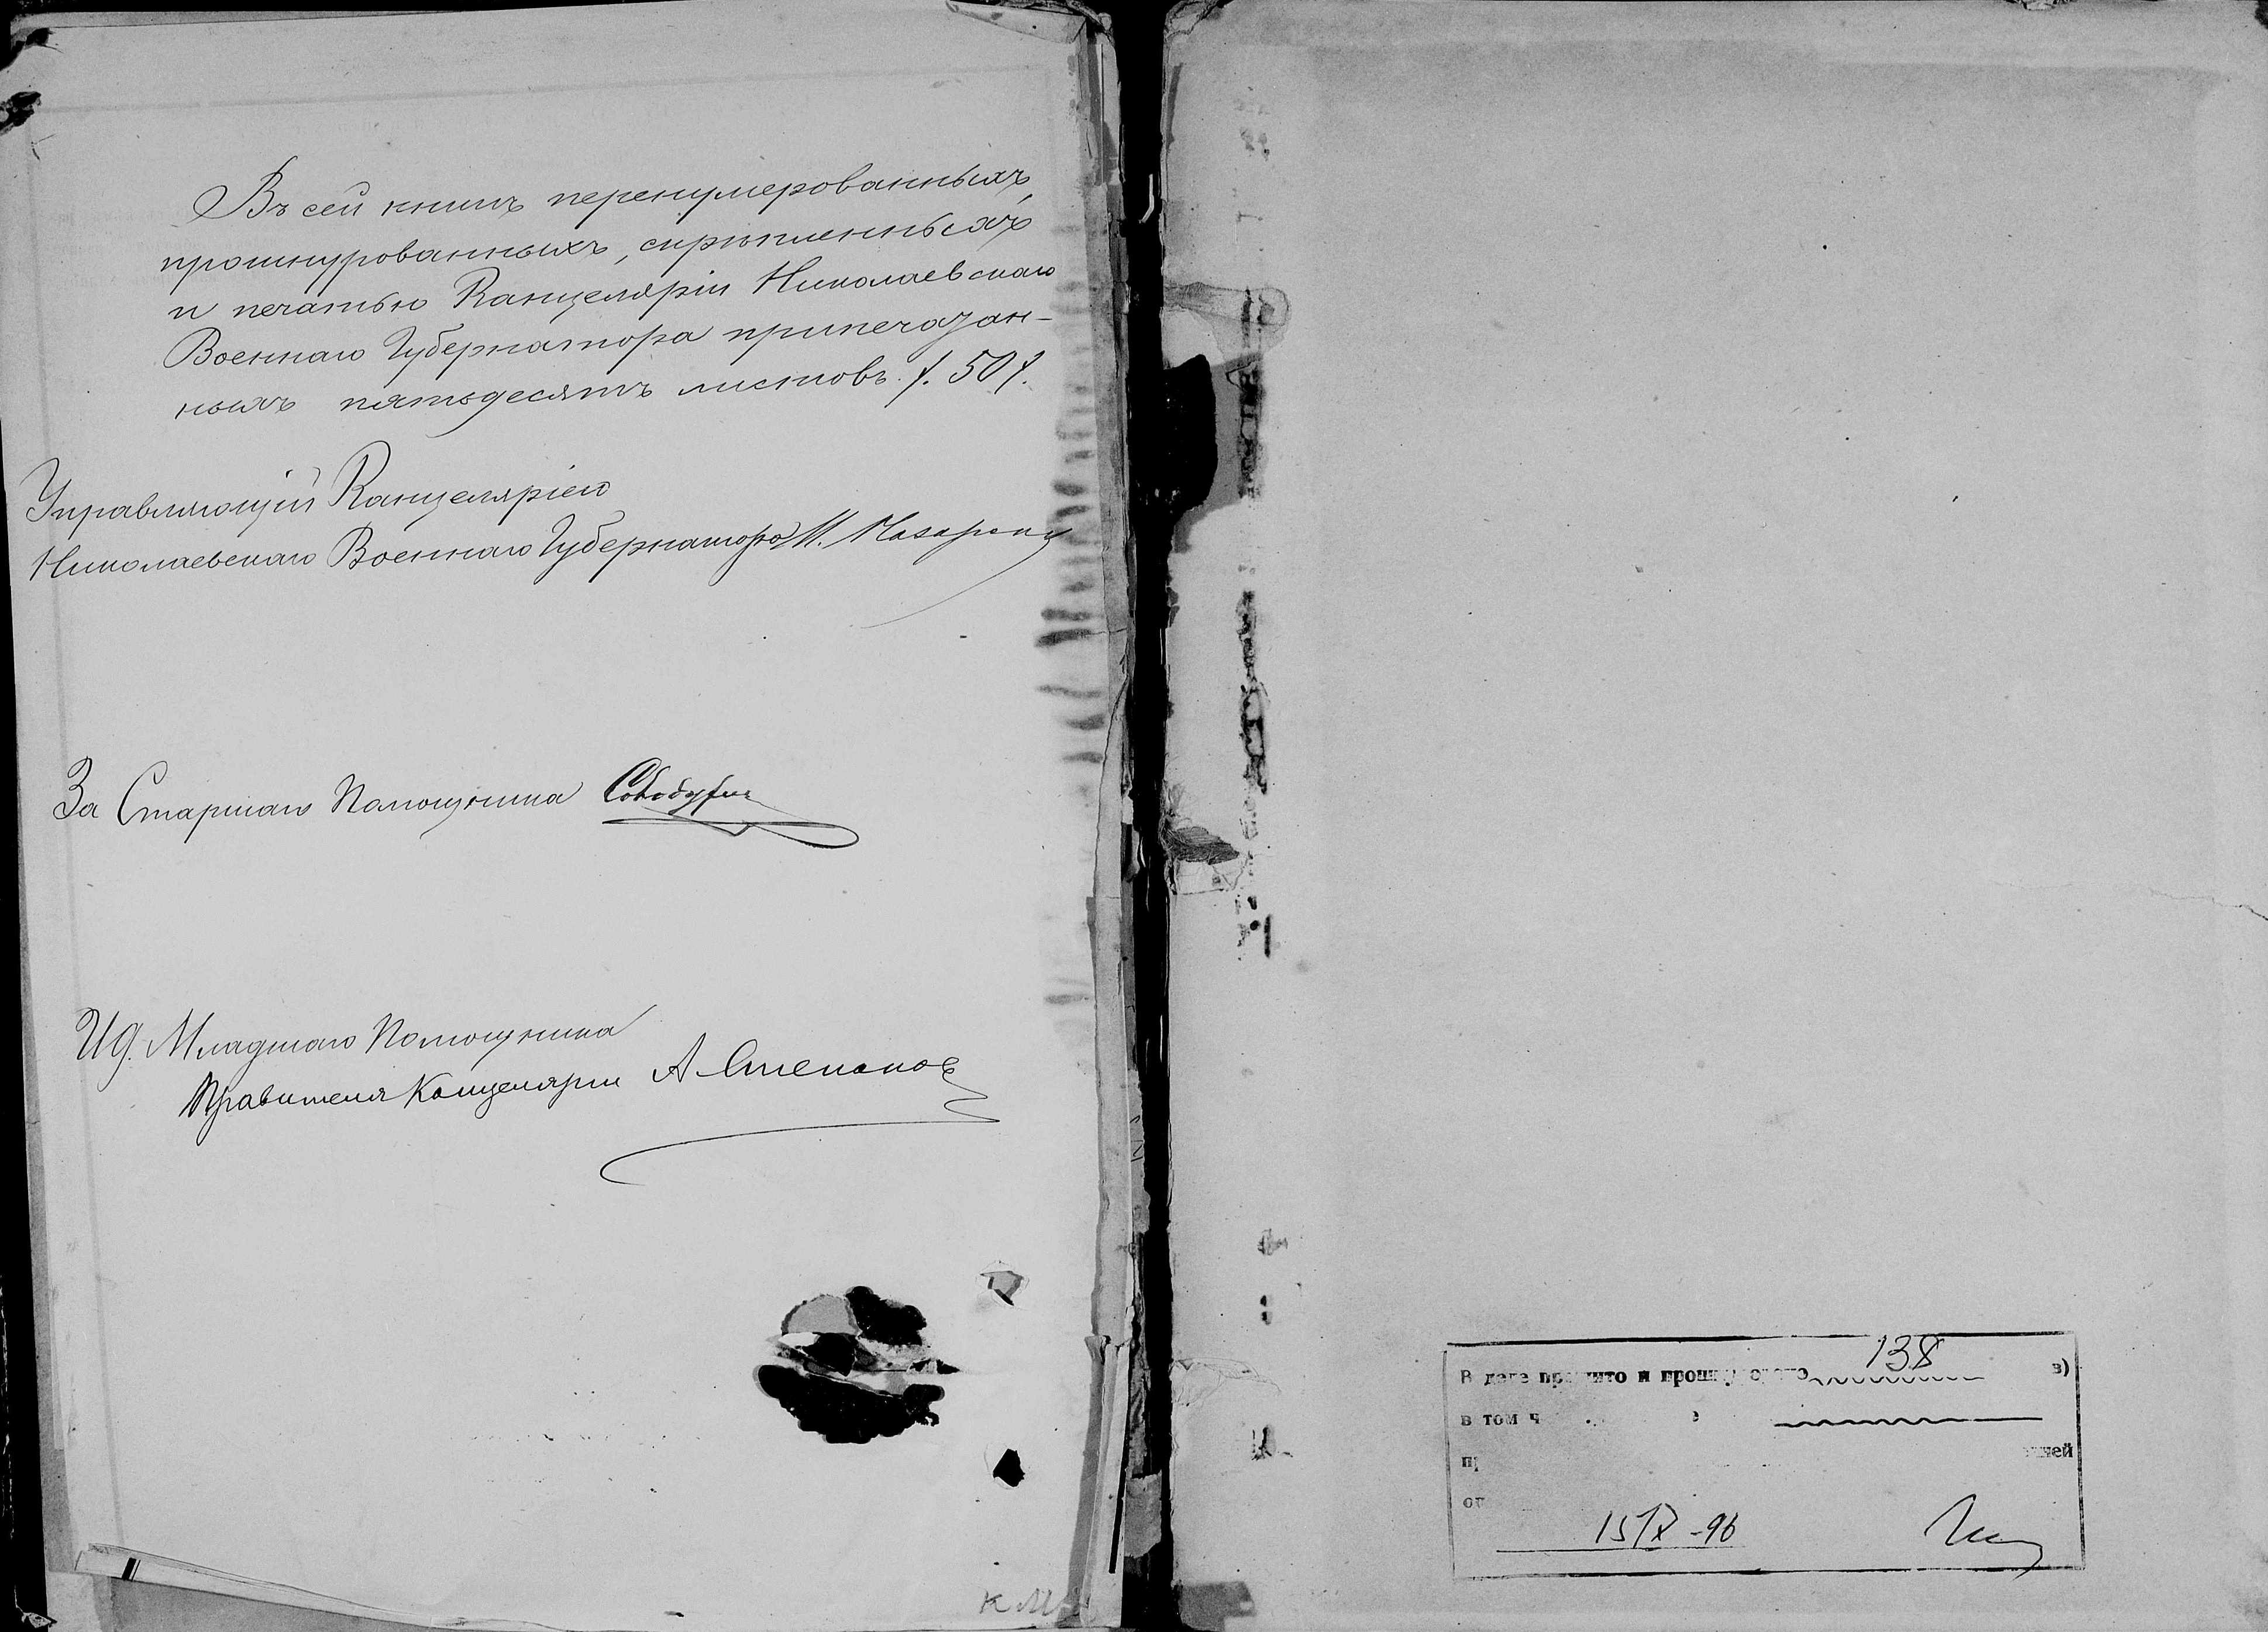 Въ сей книгѣ перенумерованныхъ,
прошнурованныхъ, скрѣпленныхъ
и печатью Канцеляріи Николаевскаго
Военнаго Губернатора припечатан-
ныхъ пятьдесятъ листовъ ./. 50 ./.
Управляющій Канцеляріею
Николаевскаго Военнаго Губернатора
За Старшаго Помощника
И.д. Младшаго Помощника
Правителя Канцеляріи А Степановъ
138
В деле
в том ч
15/X -96